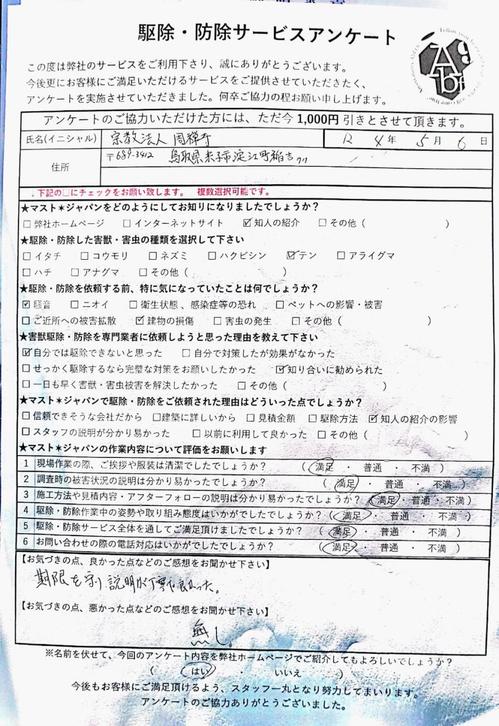 駆除・防除サービスアンケート
この度は弊社のサービスをご利用下さり、誠にありがとうございます。
今後更にお客様にご満足いただけるサービスをご提供させていただきたく、
アンケートを実施させていただきました。何卒ご協力の程お願い申し上げます。
アンケートのご協力いただけた方には、ただ今1,000円 引きとさせて頂きます。
氏名(イニシャル) 宗教法人 4 年 5 月 6 日
住所 〒689-3412 鳥取県米子市淀江町稲吉
↓下記の□にチェックをお願い致します。 複数選択可能です。
★マスト★ジャパンをどのようにしてお知りになりましたでしょうか?
□弊社ホームページ □インターネットサイト ☑知人の紹介 □その他( )
★駆除・防除した害獣・害虫の種類を選択して下さい
□イタチ □コウモリ □ネズミ □ハクビシン ☑テン □アライグマ
□ハチ □アナグマ □その他( )
★駆除・防除を依頼する前、特に気になっていたことは何でしょうか?
☑騒音 □ニオイ □衛生状態、感染症等の恐れ □ペットへの影響・被害
□ご近所への被害拡散 ☑建物の損傷 □害虫の発生 □その他( )
★害獣駆除・防除を専門業者に依頼しようと思った理由を教えて下さい
☑自分では駆除できないと思った □自分で対策したが効果がなかった
□せっかく駆除するなら完璧な対策をお願いしたかった ☑知り合いに勧められた
□一日も早く害獣・害虫被害を解決したかった □その他( )
★マスト★ジャパンで駆除・防除をご依頼された理由はどういった点でしょうか?
□信頼できそうな会社だから □建築に詳しいから □見積金額 □駆除方法 ☑知人の紹介の影響
□スタッフの説明が分かり易かった □以前に利用して良かった □その他( )
★マスト★ジャパンの作業内容について評価をお願いします
1 現場作業の際、ご挨拶や服装は清潔でしたでしょうか? ( 満足 ・ 普通 ・ 不満 )
2 調査時の被害状況の説明は分かり易かったでしょうか? ( 満足 ・ 普通 ・ 不満 )
3 施工方法や見積内容・アフターフォローの説明は分かり易かったでしょうか? ( 満足 ・ 普通 ・ 不満 )
4 駆除・防除作業中の姿勢や取り組み態度はいかがでしたでしょうか? ( 満足 ・ 普通 ・ 不満 )
5 駆除・防除サービス全体を通してご満足頂けましたでしょうか? ( 満足 ・ 普通 ・ 不満 )
6 お問い合わせの際の電話対応はいかがでしたでしょうか? ( 満足 ・ 普通 ・ 不満 )
【お気づきの点、良かった点などのご感想をお聞かせ下さい】
期限を守り説明が丁寧で良かった。
【お気づきの点、悪かった点などのご感想をお聞かせ下さい】
無し
※名前を伏せて、今回のアンケート内容を弊社ホームページでご紹介してもよろしいでしょうか?
( はい ・ いいえ )
今後もお客様にご満足頂けるよう、スタッフ一丸となり努力してまいります。
アンケートのご協力ありがとうございました。